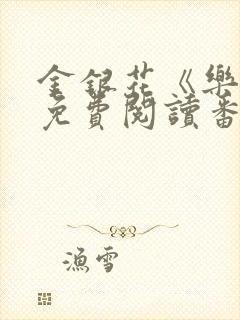 金銀花《樂
免費閱讀番
漁雪